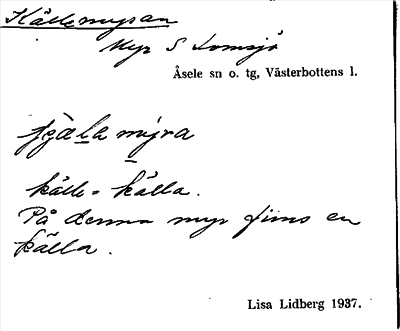 Källemyran
Myr S Lomsjö
Åsele sn o. tg, Västerbottens l.
källe = källa.
På denna myr finns en
källa.
Lisa Lidberg 1937.